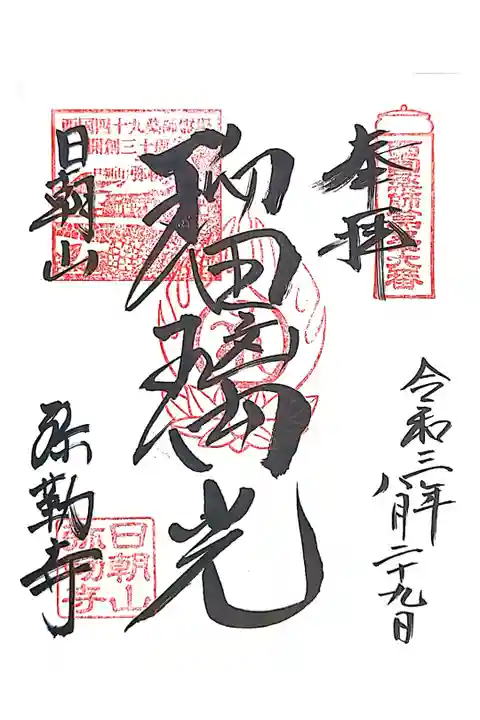 奉拝
令和三年
八月二十九日
瑠璃光
日朝山
弥勒寺
西國四十九薬師霊場
開創三十周年
日朝山
弥勒寺